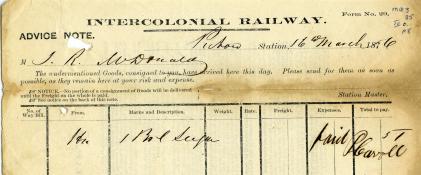 INTERCOLONIAL RAILWAY.
Form No. 29,
ADVICE NOTE.
Pictou Station, 16 March 1876
M J. R. McDonald
The undermentioned Goods, consigned to you, have arrived here this day. Please send for them as soon as
possible, as they remain here at your risk and expense.
NOTICE.—No portion of a consignment of Goods will be delivered
until the Freight on the whole is paid.
See notice on the back of this note.
Station Master,
No. of Way Bill. From. Marks and Description. Weight. Rate. Freight. Expenses. Total to pay.
1 Bbl Sugar paid